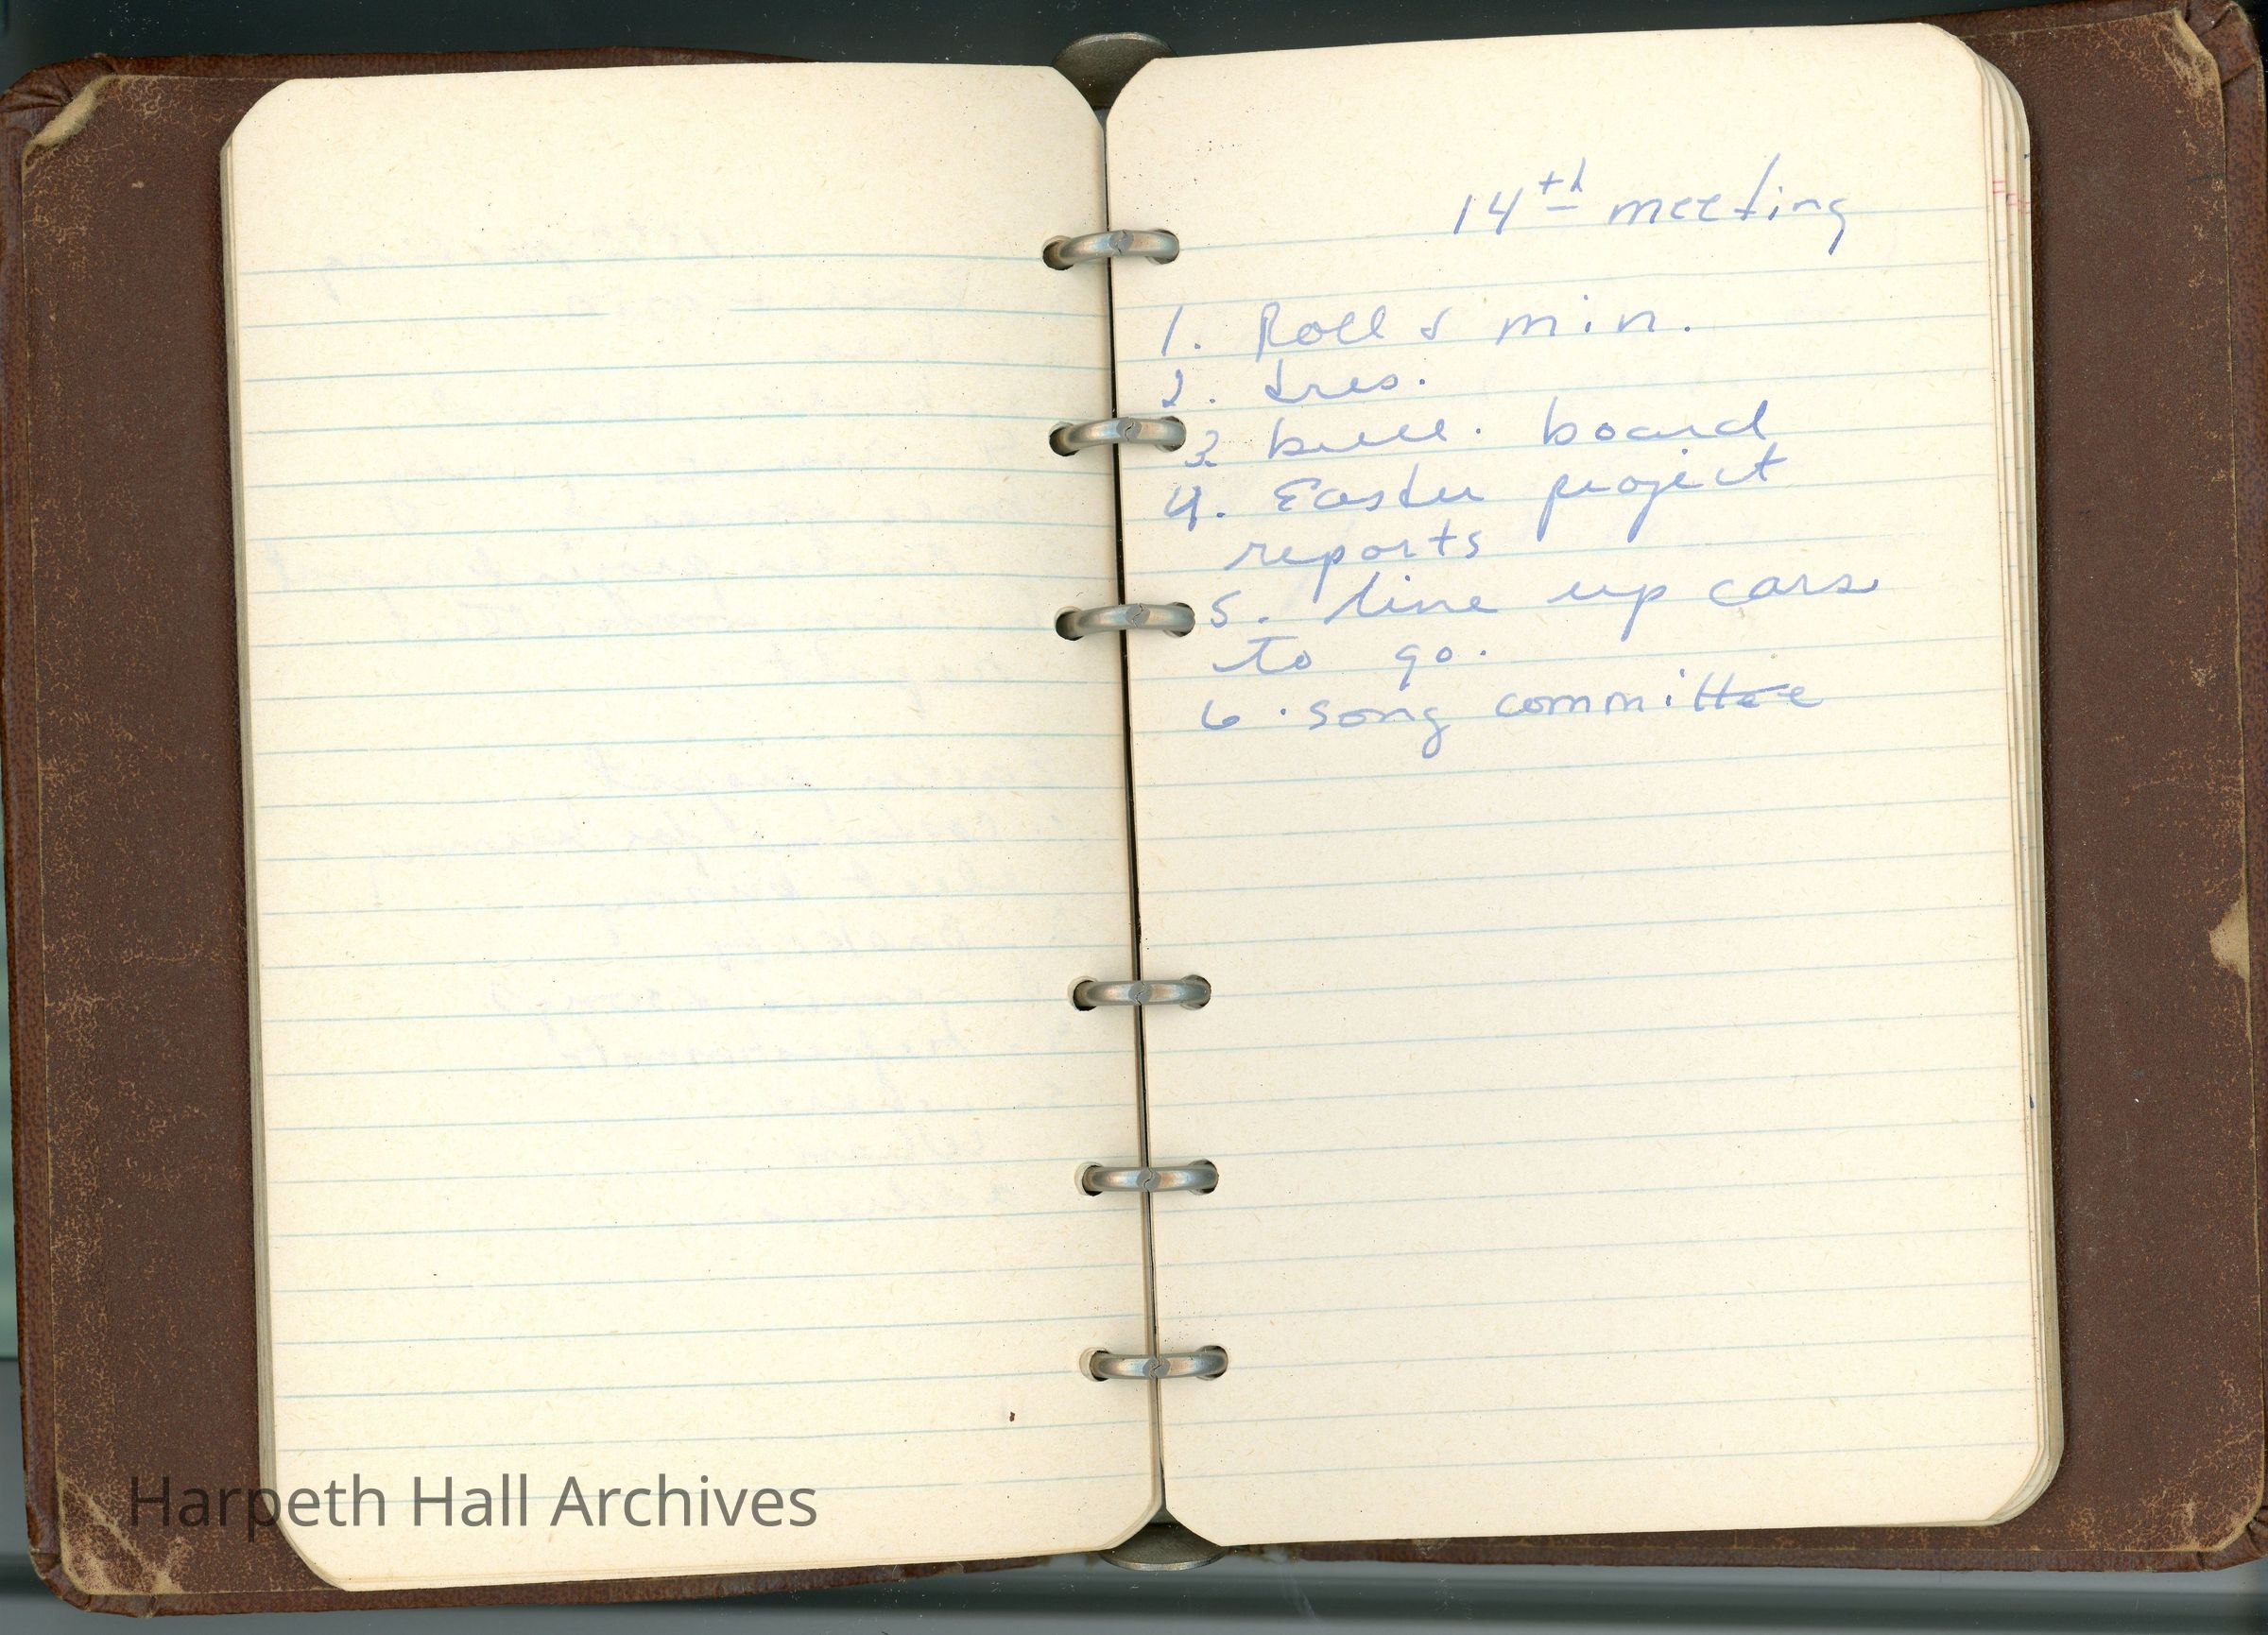 14th meeting
1. Roll & min.
2. tres.
3 bull. board
4. Easter project
reports
5. line up cars
to go.
6. song committee
Harpeth Hall Archives